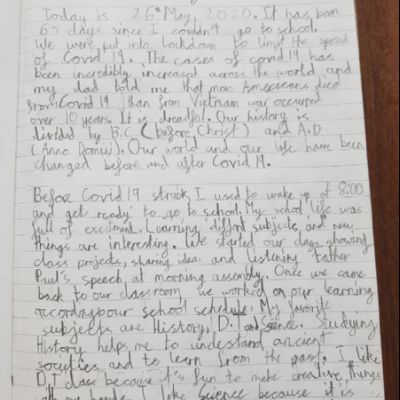 Today is 26th May, 2020. It has been
65 days since I couldn't go to school.
We were put into Lockdown to limit the spread
of Covid 19. The cases of covid 19 has
been incredibly increased across the world and
my dad told me that more Americans died
from Covid 19 than from Vietnam war occured
over 10 years. It is dreadful. Our history is
divided by B.C (before Christ) and A.D
(Anno Domini). Our world and our life have been
changed before and after Covid 19.
Before Covid 19 struck, I used to wake up at 8:00
and get ready to go to school. My school life was
full of excitment. Learning diffent subjects and new
things are interesting. We started our days showing
class projects, sharing ideas and listening father
Paul's speech, at morning assembly. Once we came
back to our classroom we worked on our learning
according our school schedule. My favorite
subjects are History, D.T and science. Studying
History helps me to understand ancient
societies and to learn from the past. I like
D.T class because it's fun to make creative things
our hands. I like science because it is